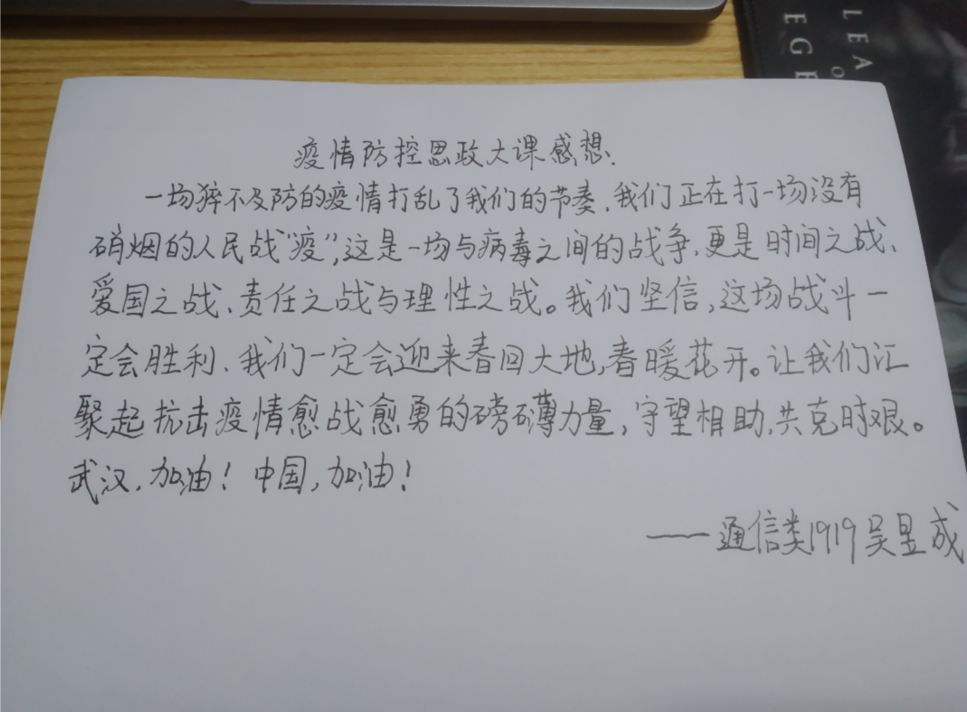 疫情防控思政大课感想.
一场猝不及防的疫情打乱了我们的节奏,我们正在打一场没有
硝烟的人民战“疫”,这是一场与病毒之间的战争,更是时间之战、
爱国之战、责任之战与理性之战。我们坚信,这场战斗一
定会胜利、我们一定会迎来春回大地,春暖花开。让我们汇
聚起抗击疫情愈战愈勇的磅礴力量,守望相助,共克时艰。
武汉,加油!中国,加油!
——通信类1919吴昱成
LEA
O
EGE